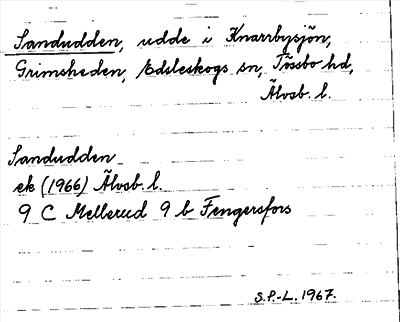 Sandudden, udde i Knarrbysjön,
Grimsheden, Edsleskogs sn, Tössbo hd,
Älvsb. l.
Sandudden
ek (1966) Älvsb. l.
9 C Mellerud 9 b Fengersfors
S.P.-L. 1967.